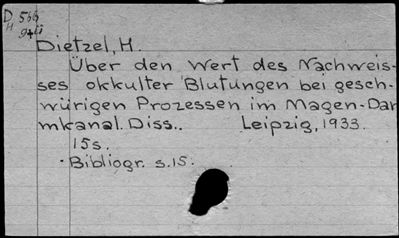 D 566
H
Dietzel, H.
Über den Wert des Nachweis-
ses okkulter Blutungen bei gesch-
würigen Prozessen im Magen-Dar
mkanal. Diss.. Leipzig, 1933.
15s.
Bibliogr. s.15.